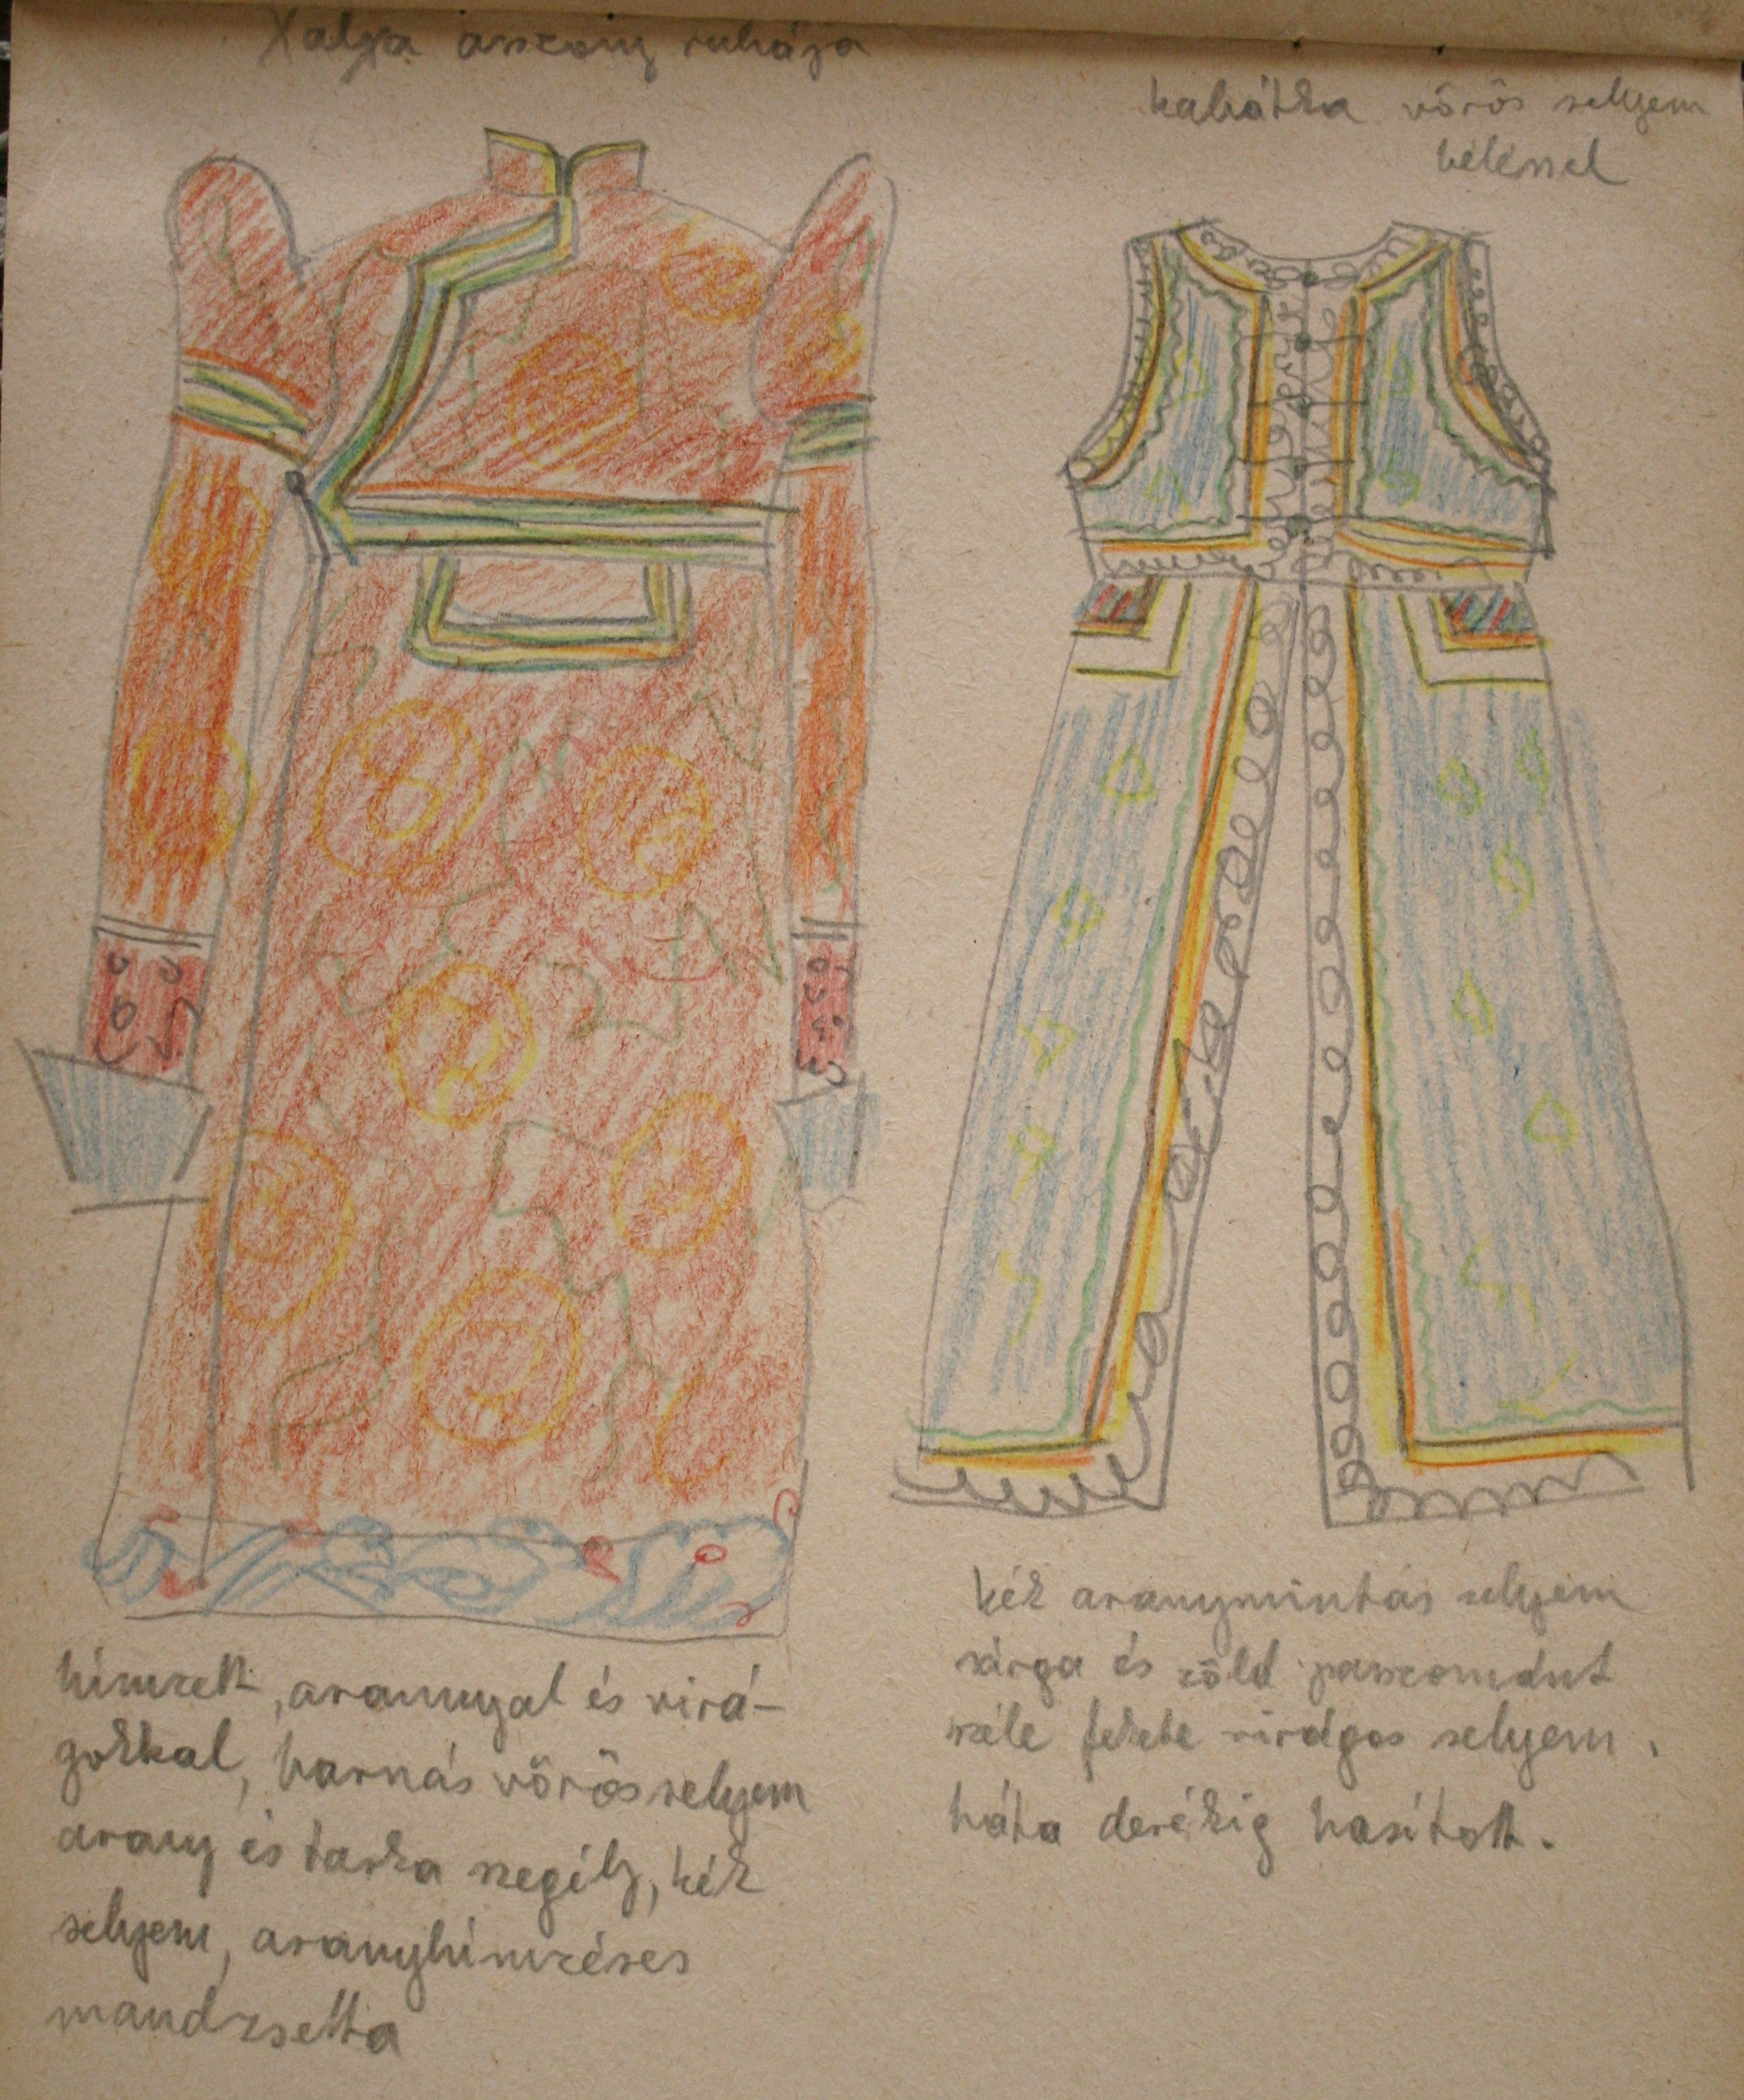 Xalxa asszony ruhája
kabátka vörös selyem
béléssel
hímzett, arannyal és virá-
gokkal, barnás vörös selyem
arany és tarka szegély, kék
selyem, aranyhímzéses
mandzsetta
kék aranymintás selyem
sárga és zöld paszománt
széle fekete virágos selyem.
háta derékig hasított.